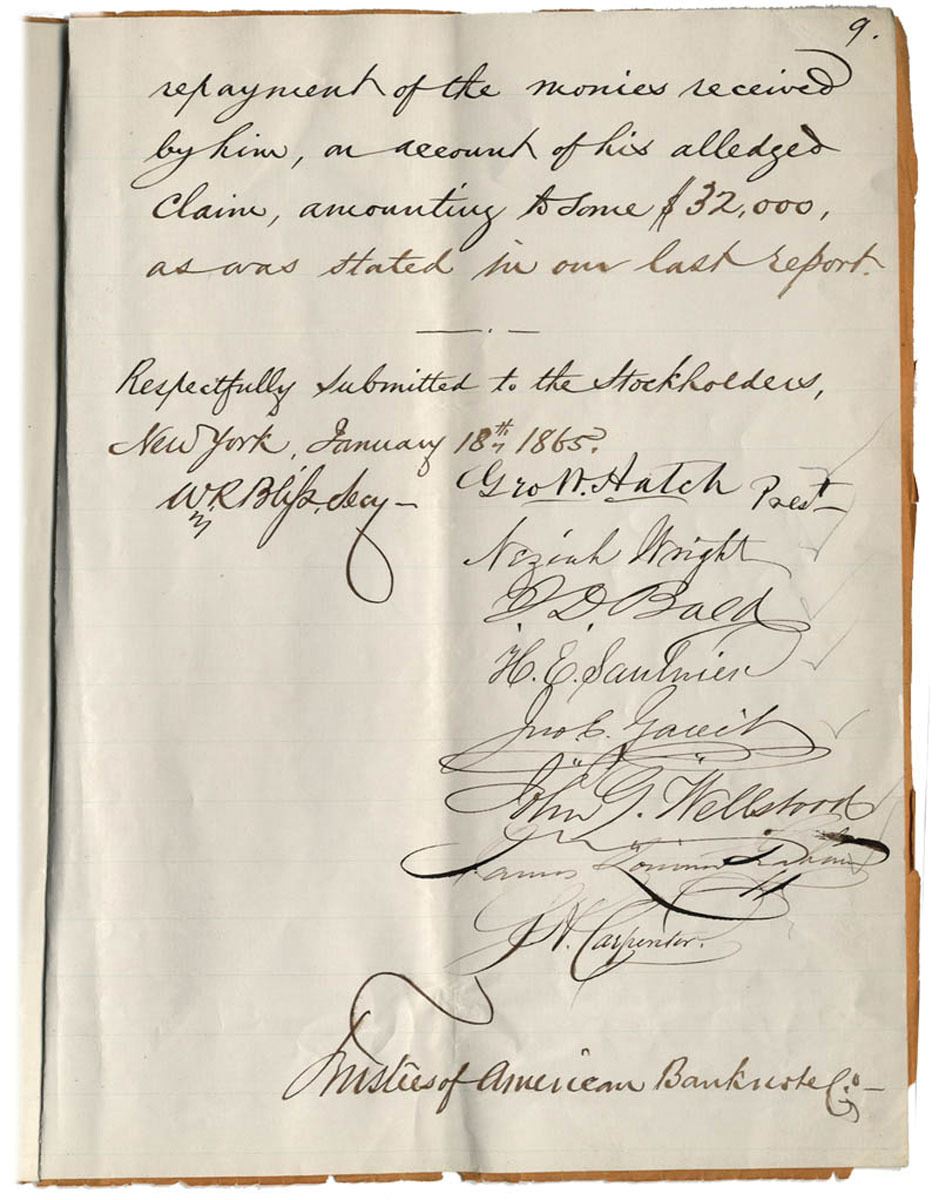 9.
repayment of the monies received
by him, on account of his alledged
Claim, amounting to some $32,000,
as was stated in our last report.
Respectfully submitted to the Stockholders,
New York, January 18th 1865.
Wm R Bliss, Secy — Geo W. Hatch Prest —
Neziah Wright
J. D. Bald
H. E. Saulnier
Jno E. Gavit
John G. Wellstood
James Graham
J H. Carpenter.
Trustees of American Banknote Co —